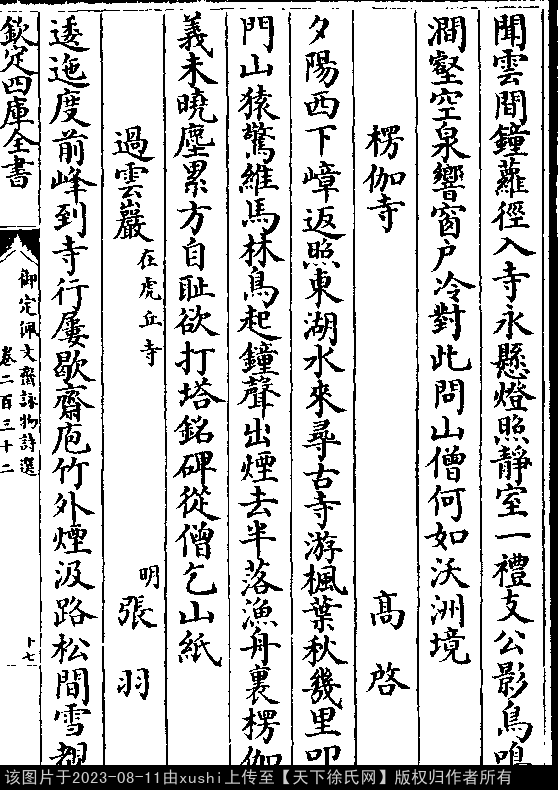 聞雲間鐘蘿徑入寺永懸燈照靜室一禮支公影鳥鳴
澗壑空泉響窗户冷對此問山僧何如沃洲境
楞伽寺 髙啓
夕陽西下嶂返照東湖水來尋古寺游楓葉秋幾里叩
門山猿驚維馬林鳥起鐘聲出煙去半落漁舟裏楞伽
義未曉塵累方自恥欲打塔銘碑從僧乞山紙
過雲巖在虎丘寺 明張羽
逶迤度前峰到寺行屢歇齋庖竹外煙汲路松間雪
欽定四庫全書
御定佩文齋詠物詩選
卷二百三十二
十七
该图片于2023-08-11由xushi上传至【天下徐氏网】版权归作者所有